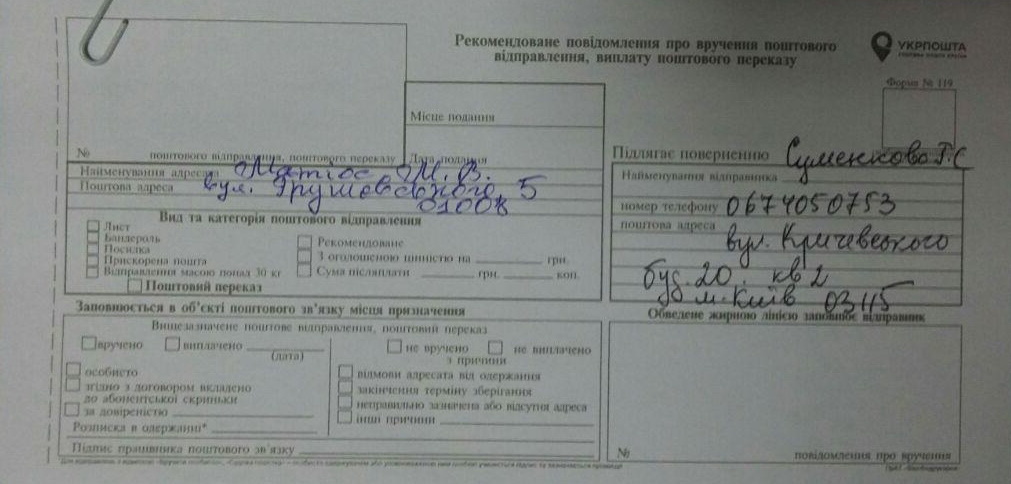 Рекомендоване повідомлення про вручення поштового
відправлення, виплату поштового переказу
УКРПОШТА
Форма № 119
Місце подання
№ поштового відправлення, поштового переказу
Дата подання
Найменування адресата Матіос М. В.
Поштова адреса вул. Грушевського, 5
01008
Вид та категорія поштового відправлення
Лист
Бандероль
Посилка
Прискорена пошта
Відправлення масою понад 30 кг
Поштовий переказ
Рекомендоване
З оголошеною цінністю на грн.
Сума післяплати грн. коп.
Підлягає поверненню Суменкова Г.С
Найменування відправника
номер телефону 0674050753
поштова адреса
вул. Кричевського
буд. 20 кв 2
м. Київ 03115
Обведене жирною лінією заповнює відправник
Заповнюється в об'єкті поштового зв'язку місця призначення
Вищезазначене поштове відправлення, поштовий переказ
вручено виплачено
(дата)
не вручено не виплачено
з причини
особисто
згідно з договором вкладено
до абонентської скриньки
за довіреністю
Розписка в одержанні*
відмови адресата від одержання
закінчення терміну зберігання
неправильно зазначена або відсутня адреса
інші причини
Підпис працівника поштового зв'язку
№ повідомлення про вручення